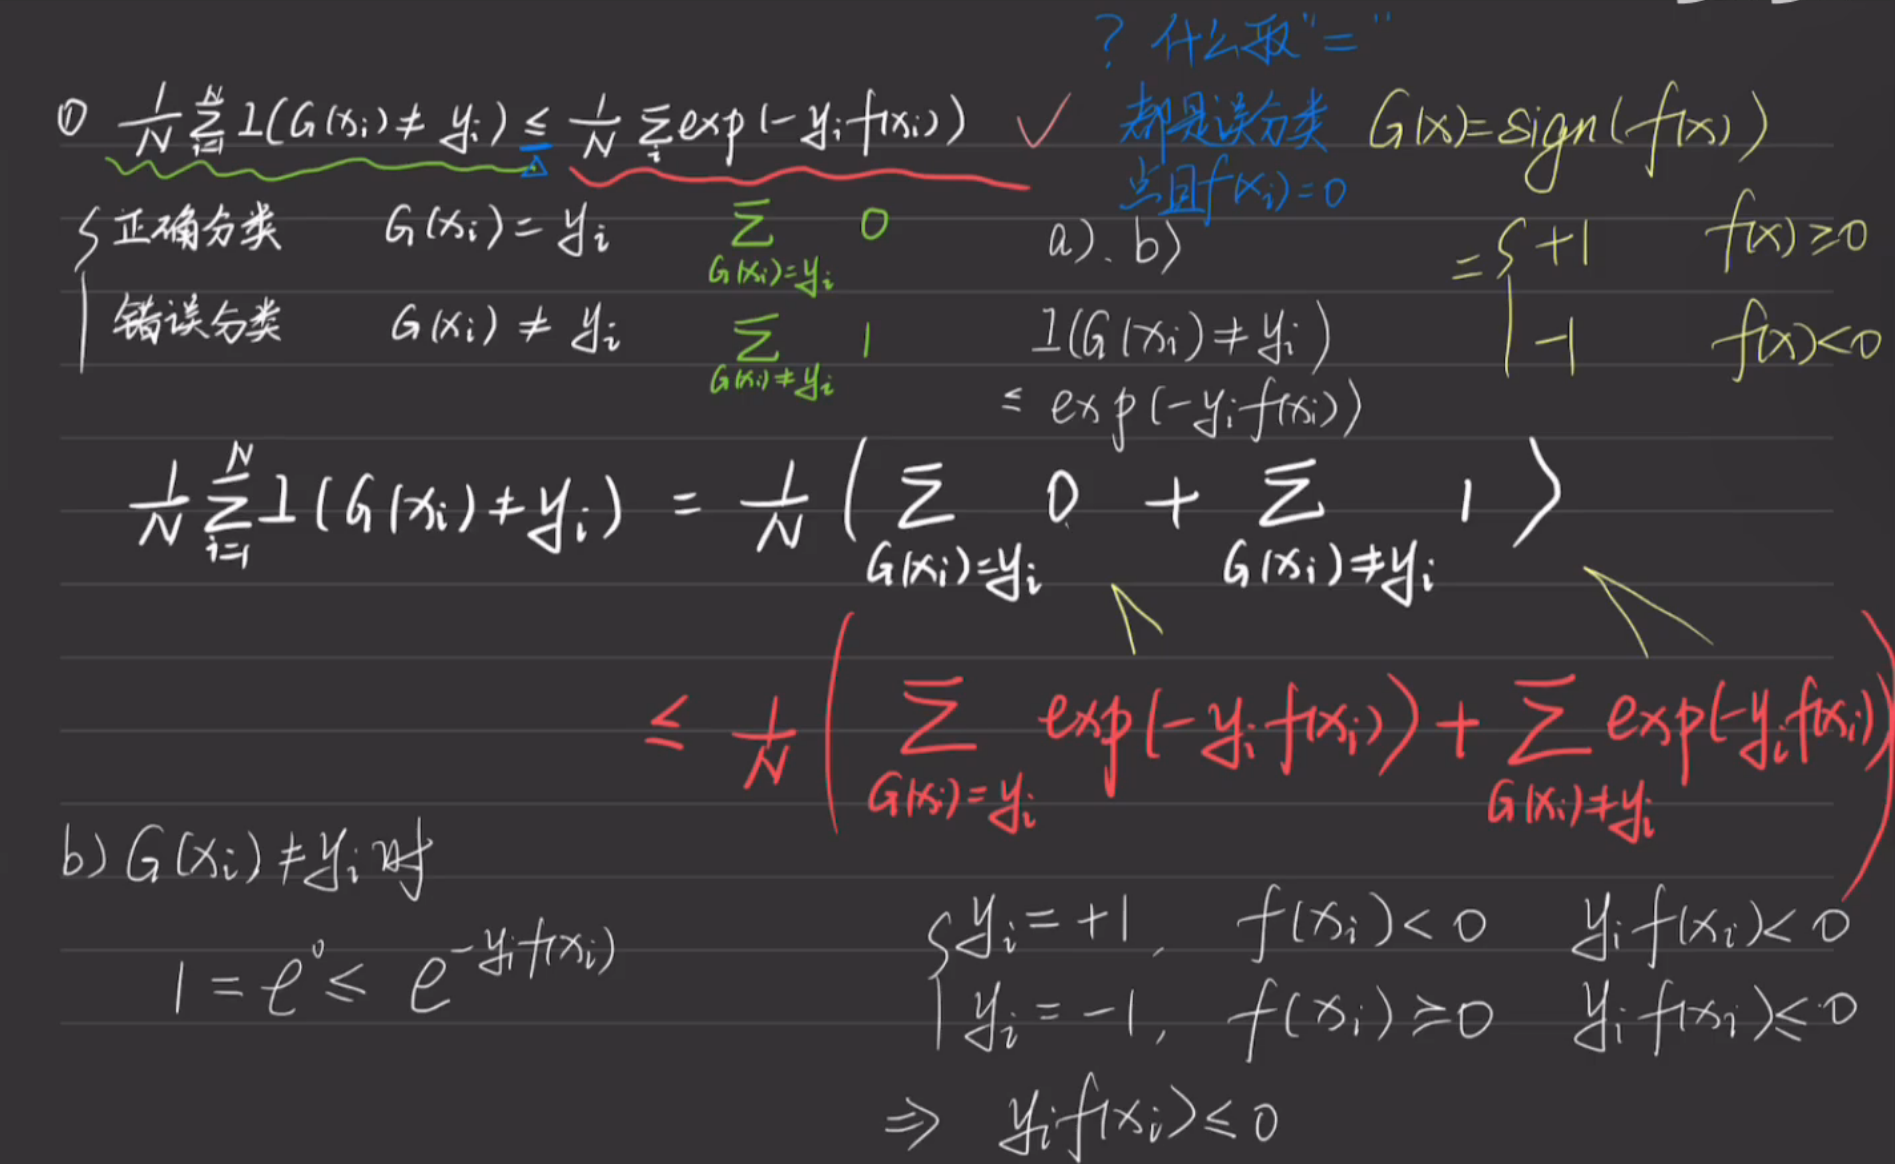 ? 什么取"="
① 1/N Σ_{i=1}^{N} 1(G(xᵢ)≠yᵢ) ≤ 1/N Σ_i exp(-yᵢf(xᵢ)) ✓
都是误分类
点且f(xᵢ)=0
G(x)=sign(f(x))
= { +1 f(x)≥0
-1 f(x)<0
{ 正确分类 G(xᵢ)=yᵢ Σ_{G(xᵢ)=yᵢ} 0
错误分类 G(xᵢ)≠yᵢ Σ_{G(xᵢ)≠yᵢ} 1
a)、b)
1(G(xᵢ)≠yᵢ)
≤ exp(-yᵢf(xᵢ))
1/N Σ_{i=1}^{N} 1(G(xᵢ)≠yᵢ) = 1/N (Σ_{G(xᵢ)=yᵢ} 0 + Σ_{G(xᵢ)≠yᵢ} 1)
≤ 1/N (Σ_{G(xᵢ)=yᵢ} exp(-yᵢf(xᵢ)) + Σ_{G(xᵢ)≠yᵢ} exp(-yᵢf(xᵢ)))
b) G(xᵢ)≠yᵢ时
1 = e⁰ ≤ e^{-yᵢf(xᵢ)}
{ yᵢ=+1, f(xᵢ)<0 yᵢf(xᵢ)<0
yᵢ=-1, f(xᵢ)≥0 yᵢf(xᵢ)≤0
⇒ yᵢf(xᵢ)≤0